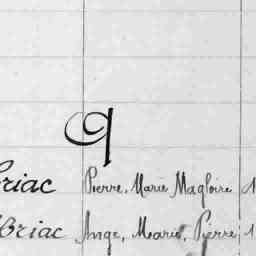 q
riac Pierre, Marie Magloire 1
Briac Ange, Marie, Pierre 1